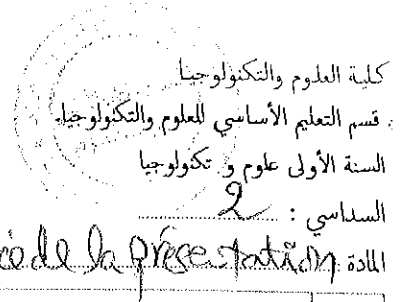 كلية العلوم والتكنولوجيا
قسم التعليم الأساسي للعلوم والتكنولوجيا.
السنة الأولى علوم و تكنولوجيا
السداسي : 2
المادة : de la présentation